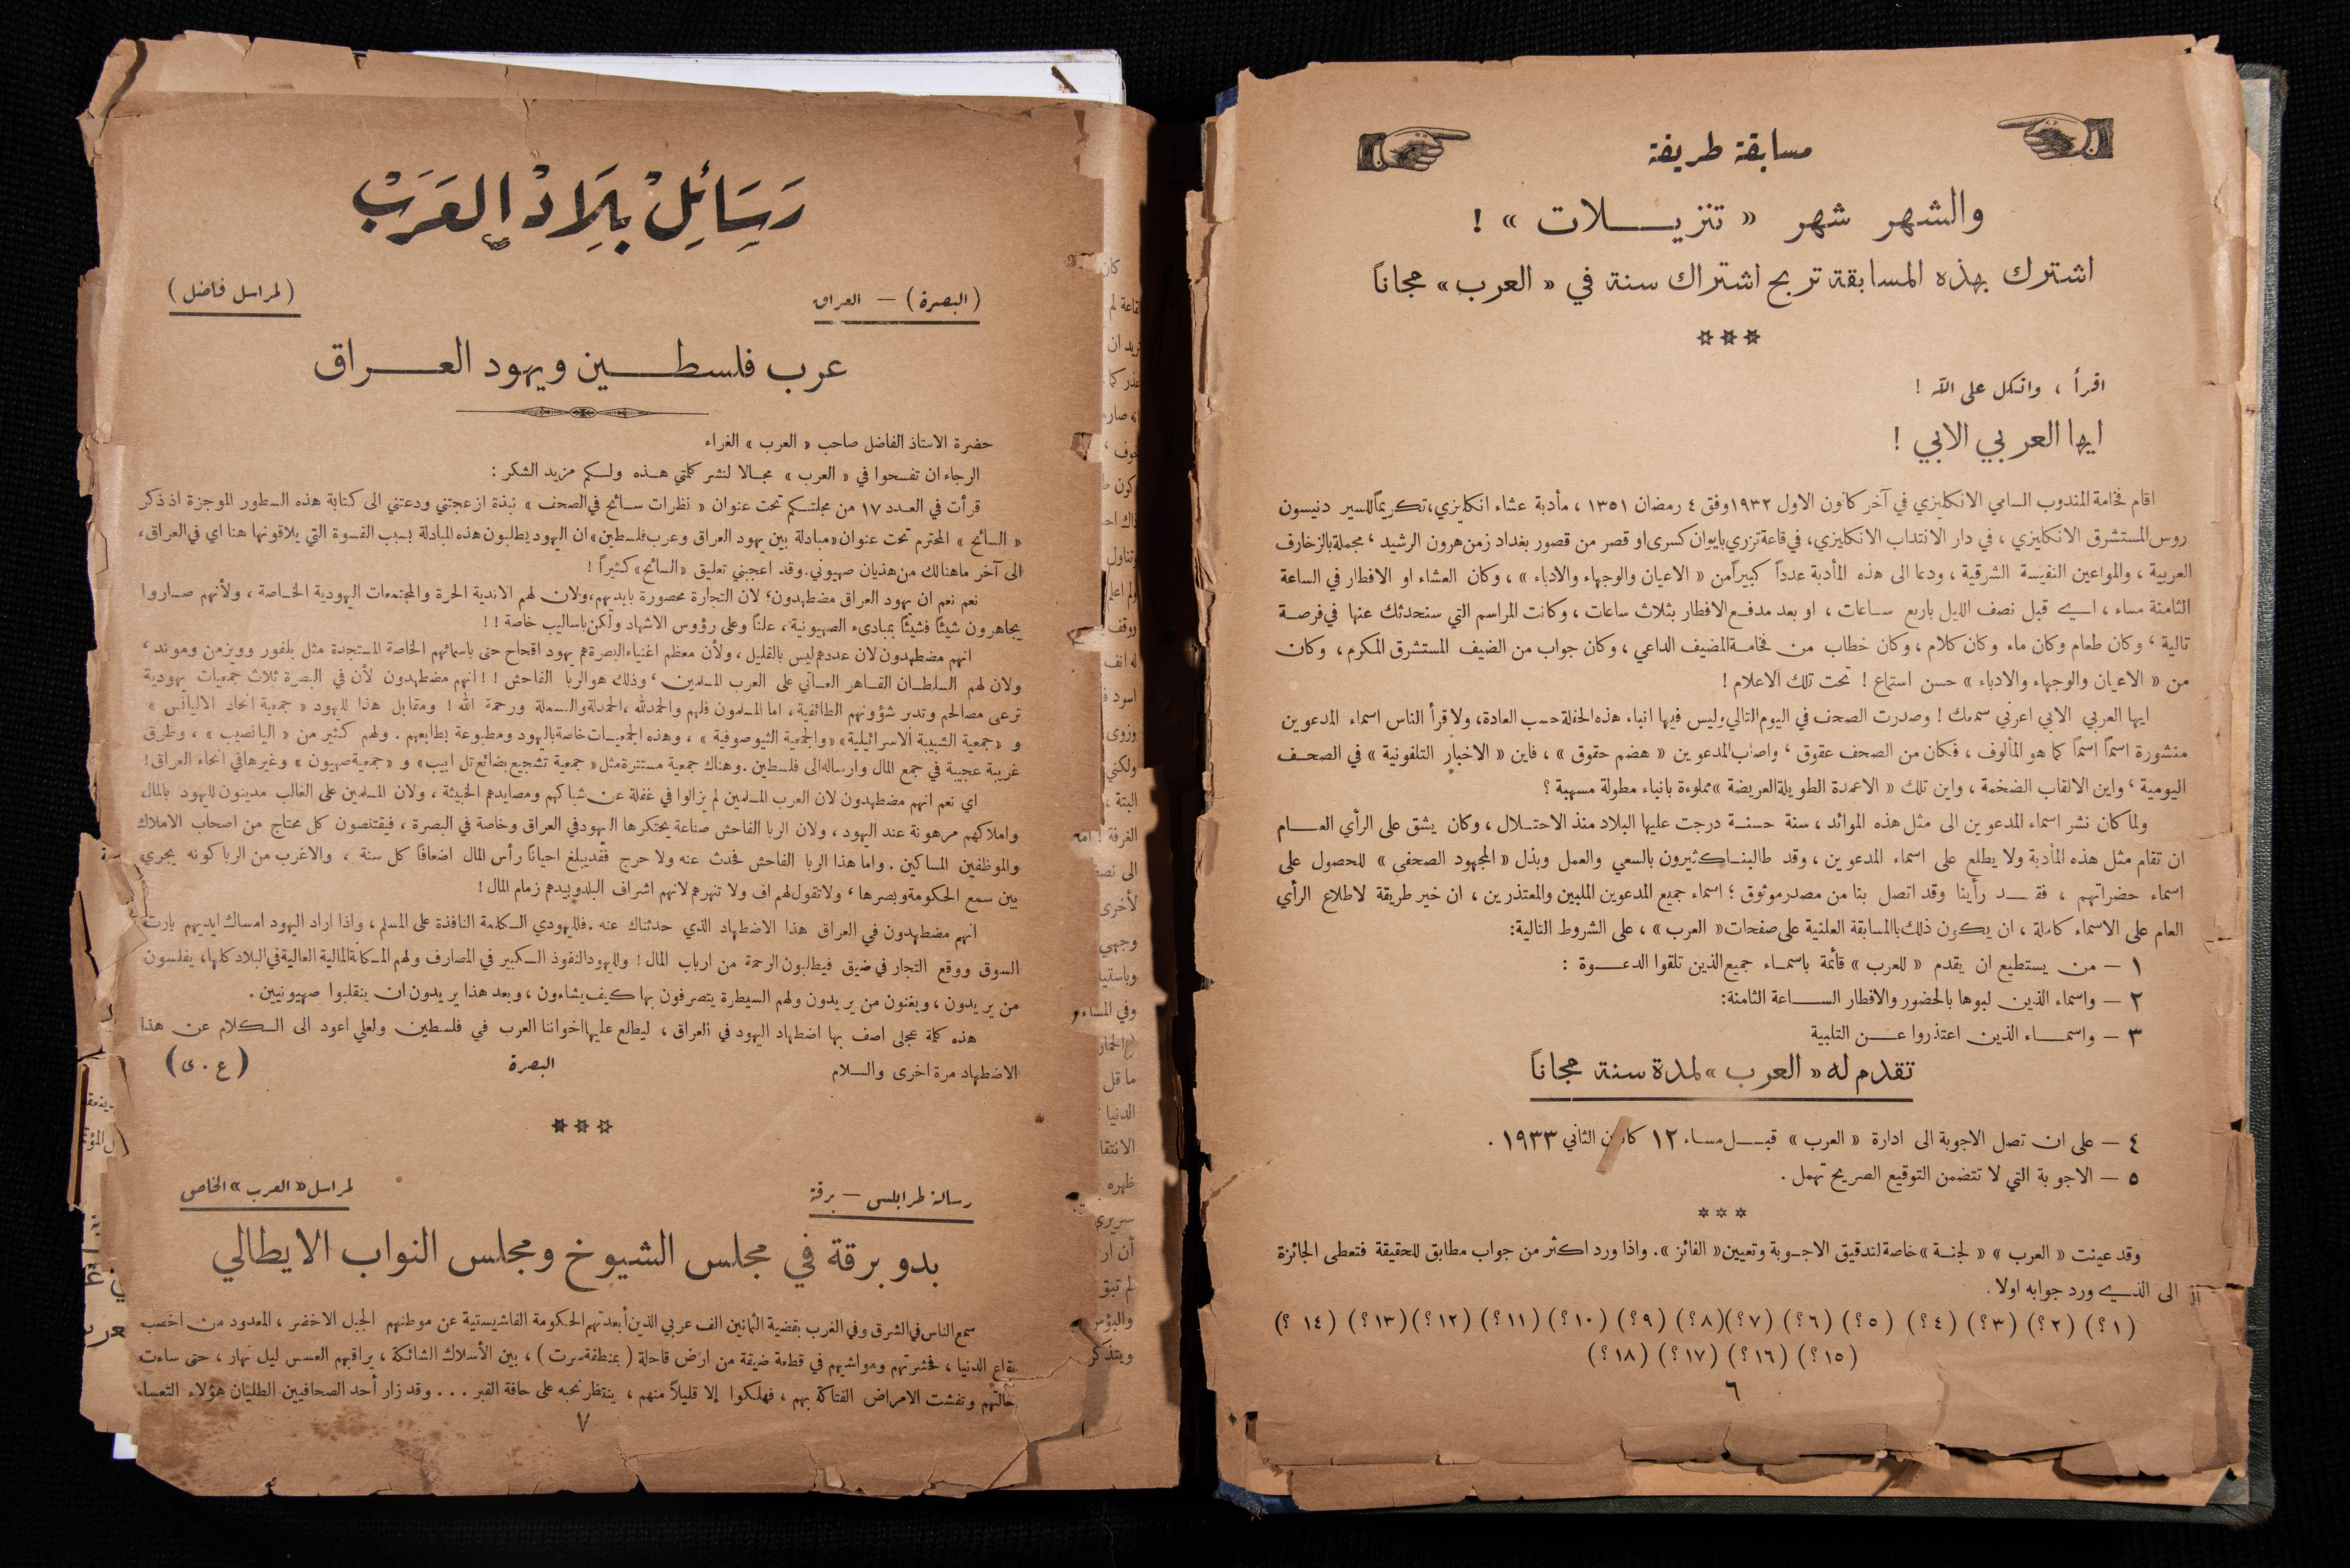 مسابقة طريفة
والشهر شهر « تنزيــــلات » !
اشترك بهذه المسابقة تربح اشتراك سنة في « العرب » مجاناً
***
اقرأ ، واتكل على الله !
ايها العربي الابي !
اقام فخامة المندوب السامي الانكليزي في آخر كانون الاول ١٩٣٢ وفق ٤ رمضان ١٣٥١ ، مأدبة عشاء انكليزي، تكريماً للسير دنيسون
روس المستشرق الانكليزي ، في دار الانتداب الانكليزي، في قاعة تزري بايوان كسرى او قصر من قصور بغداد زمن هرون الرشيد ، مجملة بالزخارف
العربية ، والمواعين النفيسة الشرقية ، ودعا الى هذه المأدبة عدداً كبيراً من « الاعيان والوجهاء والادباء » ، وكان العشاء او الافطار في الساعة
الثامنة مساء ، اي قبل نصف الليل باربع ساعات ، او بعد مدفع الافطار بثلاث ساعات ، وكانت المراسم التي سنحدثك عنها في فرصة
تالية ، وكان طعام وكان ماء وكان كلام ، وكان خطاب من فخامة المضيف الداعي ، وكان جواب من الضيف المستشرق المكرم ، وكان
من « الاعيان والوجهاء والادباء » حسن استماع ! تحت تلك الاعلام !
ايها العربي الابي اعرني سمعك ! وصدرت الصحف في اليوم التالي وليس فيها انباء هذه الحفلة حسب العادة، ولا قرأ الناس اسماء المدعوين
منشورة اسماً اسماً كما هو المألوف ، فكان من الصحف عقوق ، واصاب المدعوين « هضم حقوق » ، فاين « الاخبار التلفونية » في الصحف
اليومية ، واين الالقاب الضخمة ، واين تلك « الاعمدة الطويلة العريضة » مملوءة بانباء مطولة مسهبة ؟
ولما كان نشر اسماء المدعوين الى مثل هذه الموائد ، سنة حسنة درجت عليها البلاد منذ الاحتلال ، وكان يشق على الرأي العــــام
ان تقام مثل هذه المأدبة ولا يطلع على اسماء المدعوين ، وقد طالبنا كثيرون بالسعي والعمل وبذل « المجهود الصحفي » للحصول على
اسماء حضراتهم ، فقــد رأينا وقد اتصل بنا من مصدر موثوق ؛ اسماء جميع المدعوين الملبين والمعتذرين ، ان خير طريقة لاطلاع الرأي
العام على الاسماء كاملة ، ان يكون ذلك بالمسابقة العلنية على صفحات « العرب » ، على الشروط التالية:
١ – من يستطيع ان يقدم « للعرب » قائمة باسماء جميع الذين تلقوا الدعــــوة :
٢ – واسماء الذين لبوها بالحضور والافطار الســـاعة الثامنة:
٣ – واسمـــاء الذين اعتذروا عـــن التلبية
تقدم له « العرب » لمدة سنة مجاناً
٤ – على ان تصل الاجوبة الى ادارة « العرب » قبـــل مساء ١٢ كانون الثاني ١٩٣٣ .
٥ – الاجوبة التي لا تتضمن التوقيع الصريح تهمل .
***
وقد عينت « العرب » « لجنة » خاصة لتدقيق الاجوبة وتعيين « الفائز ». واذا ورد اكثر من جواب مطابق للحقيقة فتعطى الجائزة
الى الذي ورد جوابه اولا .
(١ ؟) (٢ ؟) (٣ ؟) (٤ ؟) (٥ ؟) (٦ ؟) (٧ ؟) (٨ ؟) (٩ ؟) (١٠ ؟) (١١ ؟) (١٢ ؟) (١٣ ؟) (١٤ ؟)
(١٥ ؟) (١٦ ؟) (١٧ ؟) (١٨ ؟)
٦
رَسَائِلْ بِلَادْ العَرَبْ
(البصرة) – العراق
(لمراسل فاضل)
عرب فلسطـــين ويهود العـــراق
حضرة الاستاذ الفاضل صاحب « العرب » الغراء
الرجاء ان تفسحوا في « العرب » مجالا لنشر كلمتي هذه ولكم مزيد الشكر :
قرأت في العدد ١٧ من مجلتكم تحت عنوان « نظرات سائح في الصحف » نبذة ازعجتني ودعتني الى كتابة هذه السطور الموجزة اذ ذكر
« السائح » المحترم تحت عنوان «مبادلة بين يهود العراق وعرب فلسطين» ان اليهود يطلبون هذه المبادلة بسبب القسوة التي يلاقونها هنا اي في العراق،
الى آخر ما هنالك من هذيان صهيوني. وقد اعجبني تعليق «السائح» كثيراً !
نعم نعم ان يهود العراق مضطهدون؛ لان التجارة محصورة بايديهم، ولان لهم الاندية الحرة والمجتمعات اليهودية الخاصة ، ولأنهم صاروا
يجاهرون شيئاً فشيئاً بمبادىء الصهيونية ، علناً وعلى رؤوس الاشهاد ولكن باساليب خاصة !!
انهم مضطهدون لان عددهم ليس بالقليل ، ولأن معظم اغنياء البصرة هم يهود اقحاح حتى باسمائهم الخاصة المستجدة مثل بلفور وويزمن وموند ،
ولان لهم السلطان القاهر العاتي على العرب المسلمين ، وذلك هو الربا الفاحش !! انهم مضطهدون لأن في البصرة ثلاث جمعيات يهودية
ترعى مصالحهم وتدبر شؤونهم الطائفية ، اما المسلمون فلهم والحمد لله ، الحمدلة والبسملة ورحمة الله ! ومقابل هذا لليهود « جمعية اتحاد الاليانس »
و « جمعية الشبيبة الاسرائيلية » « والجمعية الثيوصوفية » ، وهذه الجمعيات خاصة باليهود ومطبوعة بطابعهم . ولهم كثير من « اليانصيب » ، وطرق
غريبة عجيبة في جمع المال وارساله الى فلسطين . وهناك جمعية مستترة مثل « جمعية تشجيع بضائع تل ابيب » و « جمعية صهيون » وغيرها في انحاء العراق !
اي نعم انهم مضطهدون لان العرب المسلمين لم يزالوا في غفلة عن شباكهم ومصايدهم الخبيثة ، ولان المسلمين على الغالب مدينون لليهود بالمال
واملاكهم مرهونة عند اليهود ، ولان الربا الفاحش صناعة يحتكرها اليهود في العراق وخاصة في البصرة ، فيقتنصون كل محتاج من اصحاب الاملاك
والموظفين المساكين . واما هذا الربا الفاحش فحدث عنه ولا حرج فقد يبلغ احياناً رأس المال اضعافاً كل سنة ، والاغرب من الربا كونه يجري
بين سمع الحكومة وبصرها ، ولا تقول لهم اف ولا تنهرهم لانهم اشراف البلد وبيدهم زمام المال !
انهم مضطهدون في العراق هذا الاضطهاد الذي حدثناك عنه . فلليهودي الكلمة النافذة على المسلم ، واذا اراد اليهود امساك ايديهم بارت
السوق ووقع التجار في ضيق فيطلبون الرحمة من ارباب المال ! ولليهود النفوذ الكبير في المصارف ولهم المكانة المالية العالية في البلاد كلها، يفلسون
من يريدون ، ويغنون من يريدون ولهم السيطرة يتصرفون بها كيف يشاءون ، وبعد هذا يريدون ان ينقلبوا صهيونيين .
هذه كلمة عجلى اصف بها اضطهاد اليهود في العراق ، ليطلع عليها اخواننا العرب في فلسطين ولعلي اعود الى الكلام عن هذا
الاضطهاد مرة اخرى والسلام
البصرة
(ع . ى)
***
رسالة طرابلس – برقة
لمراسل « العرب » الخاص
بدو برقة في مجلس الشيوخ ومجلس النواب الايطالي
سمع الناس في الشرق وفي الغرب بقضية الثمانين الف عربي الذين أبعدتهم الحكومة الفاشيستية عن موطنهم الجبل الاخضر ، المعدود من اخصب
بقاع الدنيا ، فحشرتهم ومواشيهم في قطعة ضيقة من ارض قاحلة ( بمنطقة سرت ) ، بين الأسلاك الشائكة ، يراقبهم العسس ليل نهار ، حتى ساءت
حالتهم وتفشت الامراض الفتاكة بهم ، فهلكوا إلا قليلاً منهم ، ينتظر نحبه على حافة القبر ... وقد زار أحد الصحافيين الطليان هؤلاء التعساء
٧